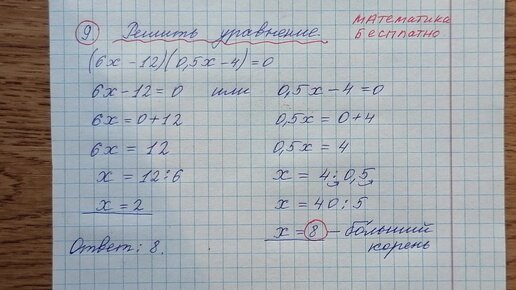 9. Решить уравнение.
МАТЕМАТИКА
БЕСПЛАТНО
(6x - 12)(0,5x - 4) = 0
6x - 12 = 0 или 0,5x - 4 = 0
6x = 0 + 12 0,5x = 0 + 4
6x = 12 0,5x = 4
x = 12 : 6 x = 4 : 0,5
x = 2 x = 40 : 5
x = 8 — больший
корень
Ответ: 8.